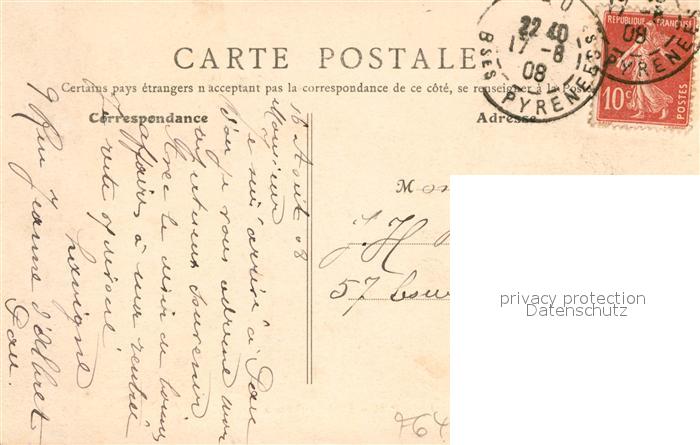 CARTE POSTALE
Certains pays étrangers n'acceptant pas la correspondance de ce côté, se renseigner à la Poste
Correspondance
Adresse
16 Août 08
Monsieur
Je suis arrivé à Pau
d'où je vous adresse mon
souvenir
Avec le désir de bonnes
affaires à ma rentrée
Lavigne
9 Rue Jeanne d'Albret
Pau.
M
J. H
57
764
22 40
17-8
08
BSES PYRENEES
17-8
08
PYRENEES
RÉPUBLIQUE FRANÇAISE
10c
POSTES
privacy protection
Datenschutz